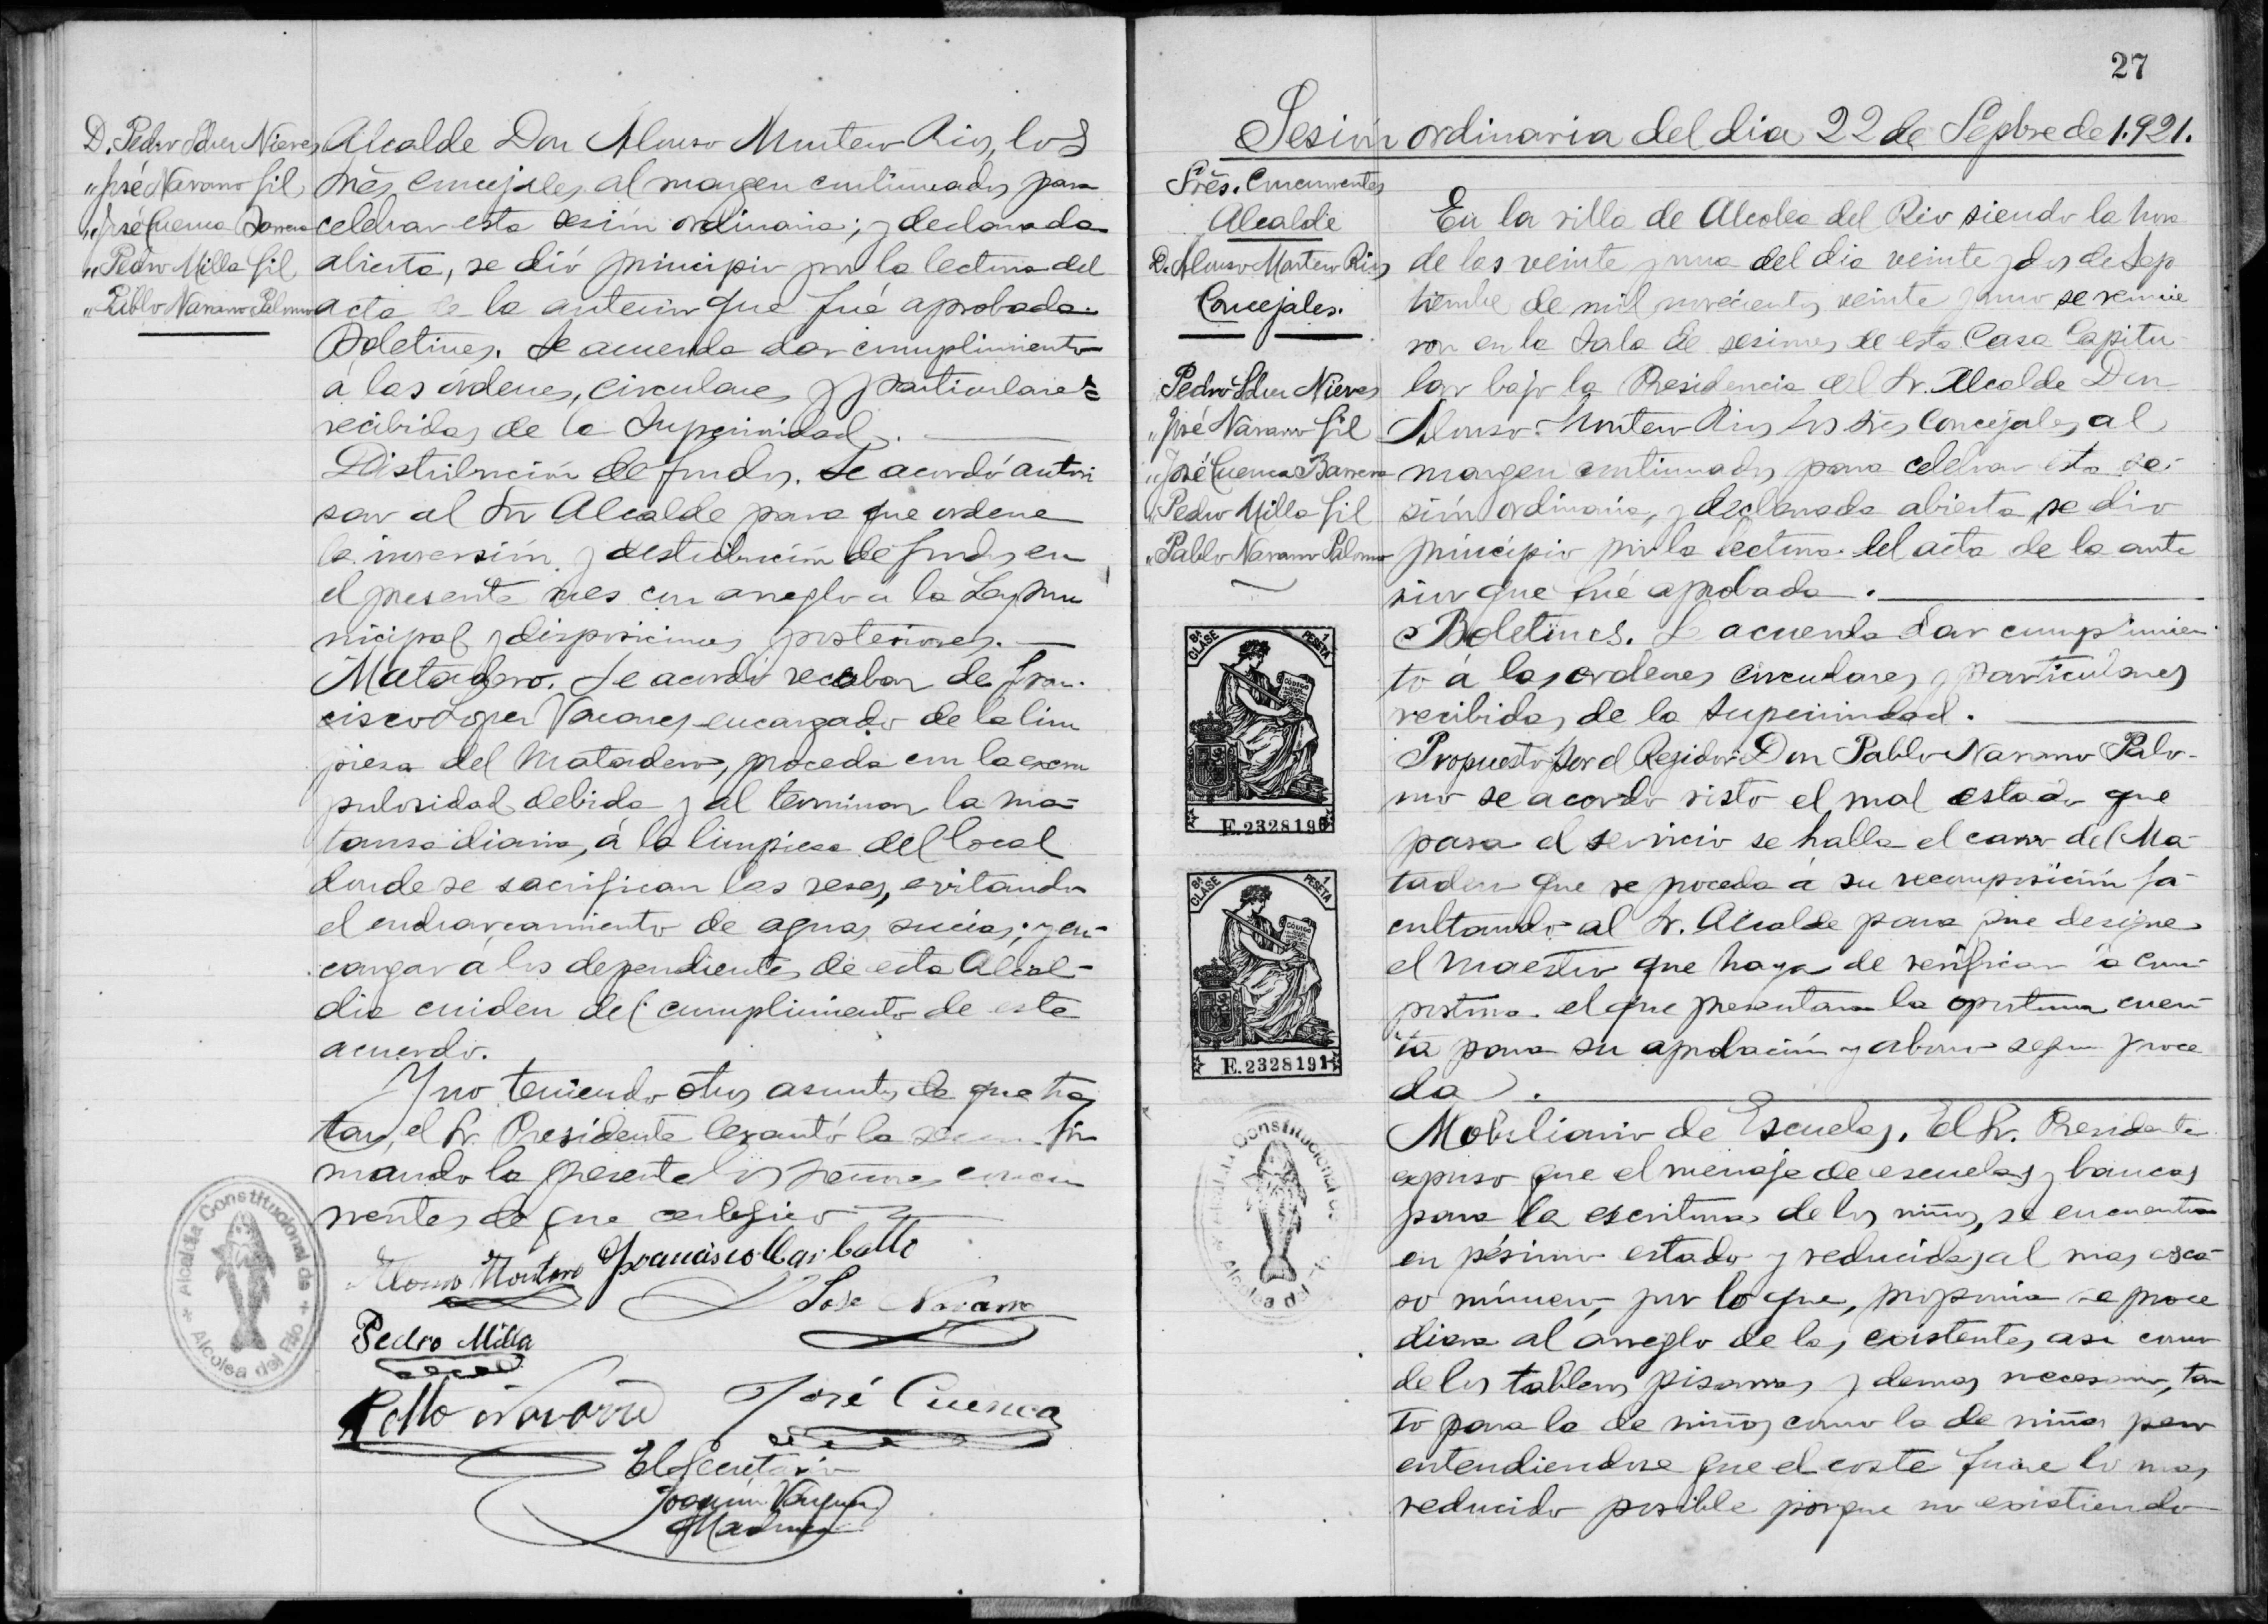 D. Pedro Nieves
"José Navarro Gil
"José Cuenca Barrera
"Pedro Milla Gil
"Pablo Navarro Palomo
Alcalde Don Alonso Montero Rios, los
Srēs Concejales al margen continuados para
celebrar esta sesión ordinaria; y declarada
abierta, se dió principio por la lectura del
acta de la anterior que fué aprobada.
Boletines. Se acuerda dar cumplimiento
á las órdenes, circulares y particulares
recibidas de la Superioridad.
Distribución de fondos. Se acordó autori
sar al Sr Alcalde para que ordene
la inversión y destribución de fondos en
el presente mes con arreglo a la Ley Mu
nicipal y disposiciones posteriores.
Matadero. Se acordó recabar de Fran-
cisco Lopez Vacares encargado de la lim
piesa del Matadero, proceda con la escru
pulosidad debida y al terminar la ma-
tansa diaria, á la limpiesa del local
donde se sacrifican las reses, evitando
el encharcamiento de aguas sucias; y en-
cargar á los dependientes de esta Alcal-
dia cuiden del cumplimiento de este
acuerdo.
Y no teniendo otros asuntos de que tra
tar, el Sr. Presidente levantó la sesion fir
mando la presente los Señores concu
rrentes de que certifico
Alonso Montero Francisco Carballo
José Navarro
Pedro Milla
Pablo Navarro José Cuenca
El Secretario
Joaquin
Alcaldia Constitucional de
Alcolea del Rio
27
Sesión ordinaria del dia 22 de Sepbre de 1.921.
Srēs. Concurrentes
Alcalde
D. Alonso Montero Rios
Concejales.
Pedro Nieves
"José Navarro Gil
"José Cuenca Barrera
"Pedro Milla Gil
"Pablo Navarro Palomo
8ª CLASE
1 PESETA
E.2328190
8ª CLASE
1 PESETA
E.2328191
Alcaldia Constitucional de
Alcolea del Rio
En la villa de Alcolea del Rio siendo la hora
de las veinte y una del dia veinte y dos de Sep
tiembre de mil novecientos veinte y uno se reunie
ron en la Sala de sesiones de esta Casa Capitu-
lar bajo la Presidencia del Sr. Alcalde Don
Alonso Montero Rios los Srēs Concejales al
margen continuados para celebrar esta se-
sión ordinaria, y declarada abierta se dio
principio por la lectura del acta de la ante
rior que fué aprobada.
Boletines. Se acuerda dar cumplimien-
to á las ordenes circulares y particulares
recibidas de la Superioridad.
Propuesto por el Regidor Don Pablo Navarro Palo-
mo se acordo visto el mal estado que
para el servicio se halla el carro del Ma-
tadero que se proceda á su recomposición fa-
cultando al Sr. Alcalde para que designe
el maestro que haya de verificar la com-
postura el que presentara la oportuna cuen-
ta para su aprobación y abono segun proce
da.
Mobiliario de Escuelas. El Sr. Presidente
expuso que el menaje de escuelas y bancas
para la escritura de los niños, se encuentra
en pésimo estado y reducidas al mas esca-
so número, por lo que, proponia se proce
diera al arreglo de las existentes asi como
de los tableros pisarras y demas necesario, tan
to para la de niños como la de niñas pero
entendiendose que el coste fuere lo mas
reducido posible porque no existiendo